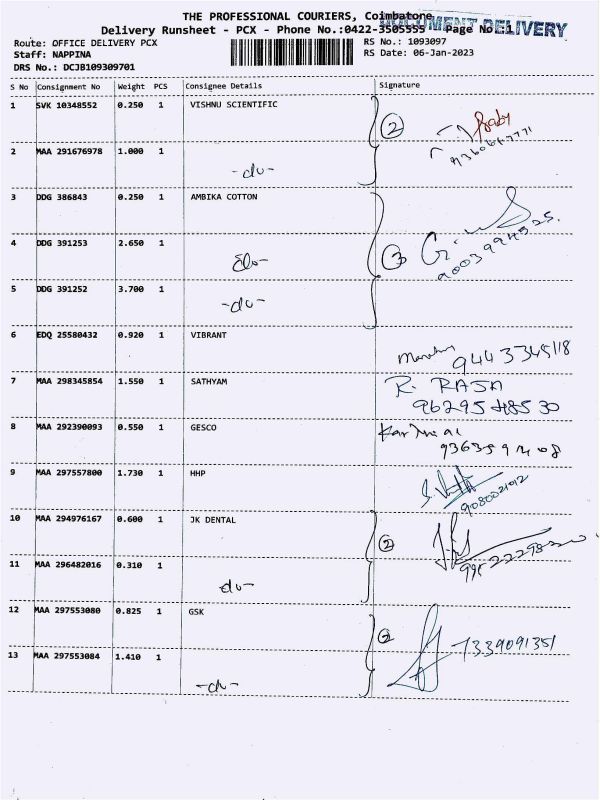 THE PROFESSIONAL COURIERS, Coimbatore
DOCUMENT DELIVERY
Delivery Runsheet - PCX - Phone No.:0422-3505555 - Page No
Route: OFFICE DELIVERY PCX
RS No.: 1093097
Staff: NAPPINA
RS Date: 06-Jan-2023
DRS No.: DCJB109309701
S No Consignment No Weight PCS Consignee Details Signature
1 SVK 10348552 0.250 1 VISHNU SCIENTIFIC
2 Baby
2 MAA 291676978 1.000 1
-do-
3 DDG 386843 0.250 1 AMBIKA COTTON
4 DDG 391253 2.650 1
-do-
3
5 DDG 391252 3.700 1
-do-
6 EDQ 25580432 0.920 1 VIBRANT
9443345118
7 MAA 298345854 1.550 1 SATHYAM R. RAJA
9629548530
8 MAA 292390093 0.550 1 GESCO
9 MAA 297557800 1.730 1 HHP
9080021012
10 MAA 294976167 0.600 1 JK DENTAL
2
11 MAA 296482016 0.310 1
-do-
12 MAA 297553080 0.825 1 GSK
2 7339091351
13 MAA 297553084 1.410 1
-do-